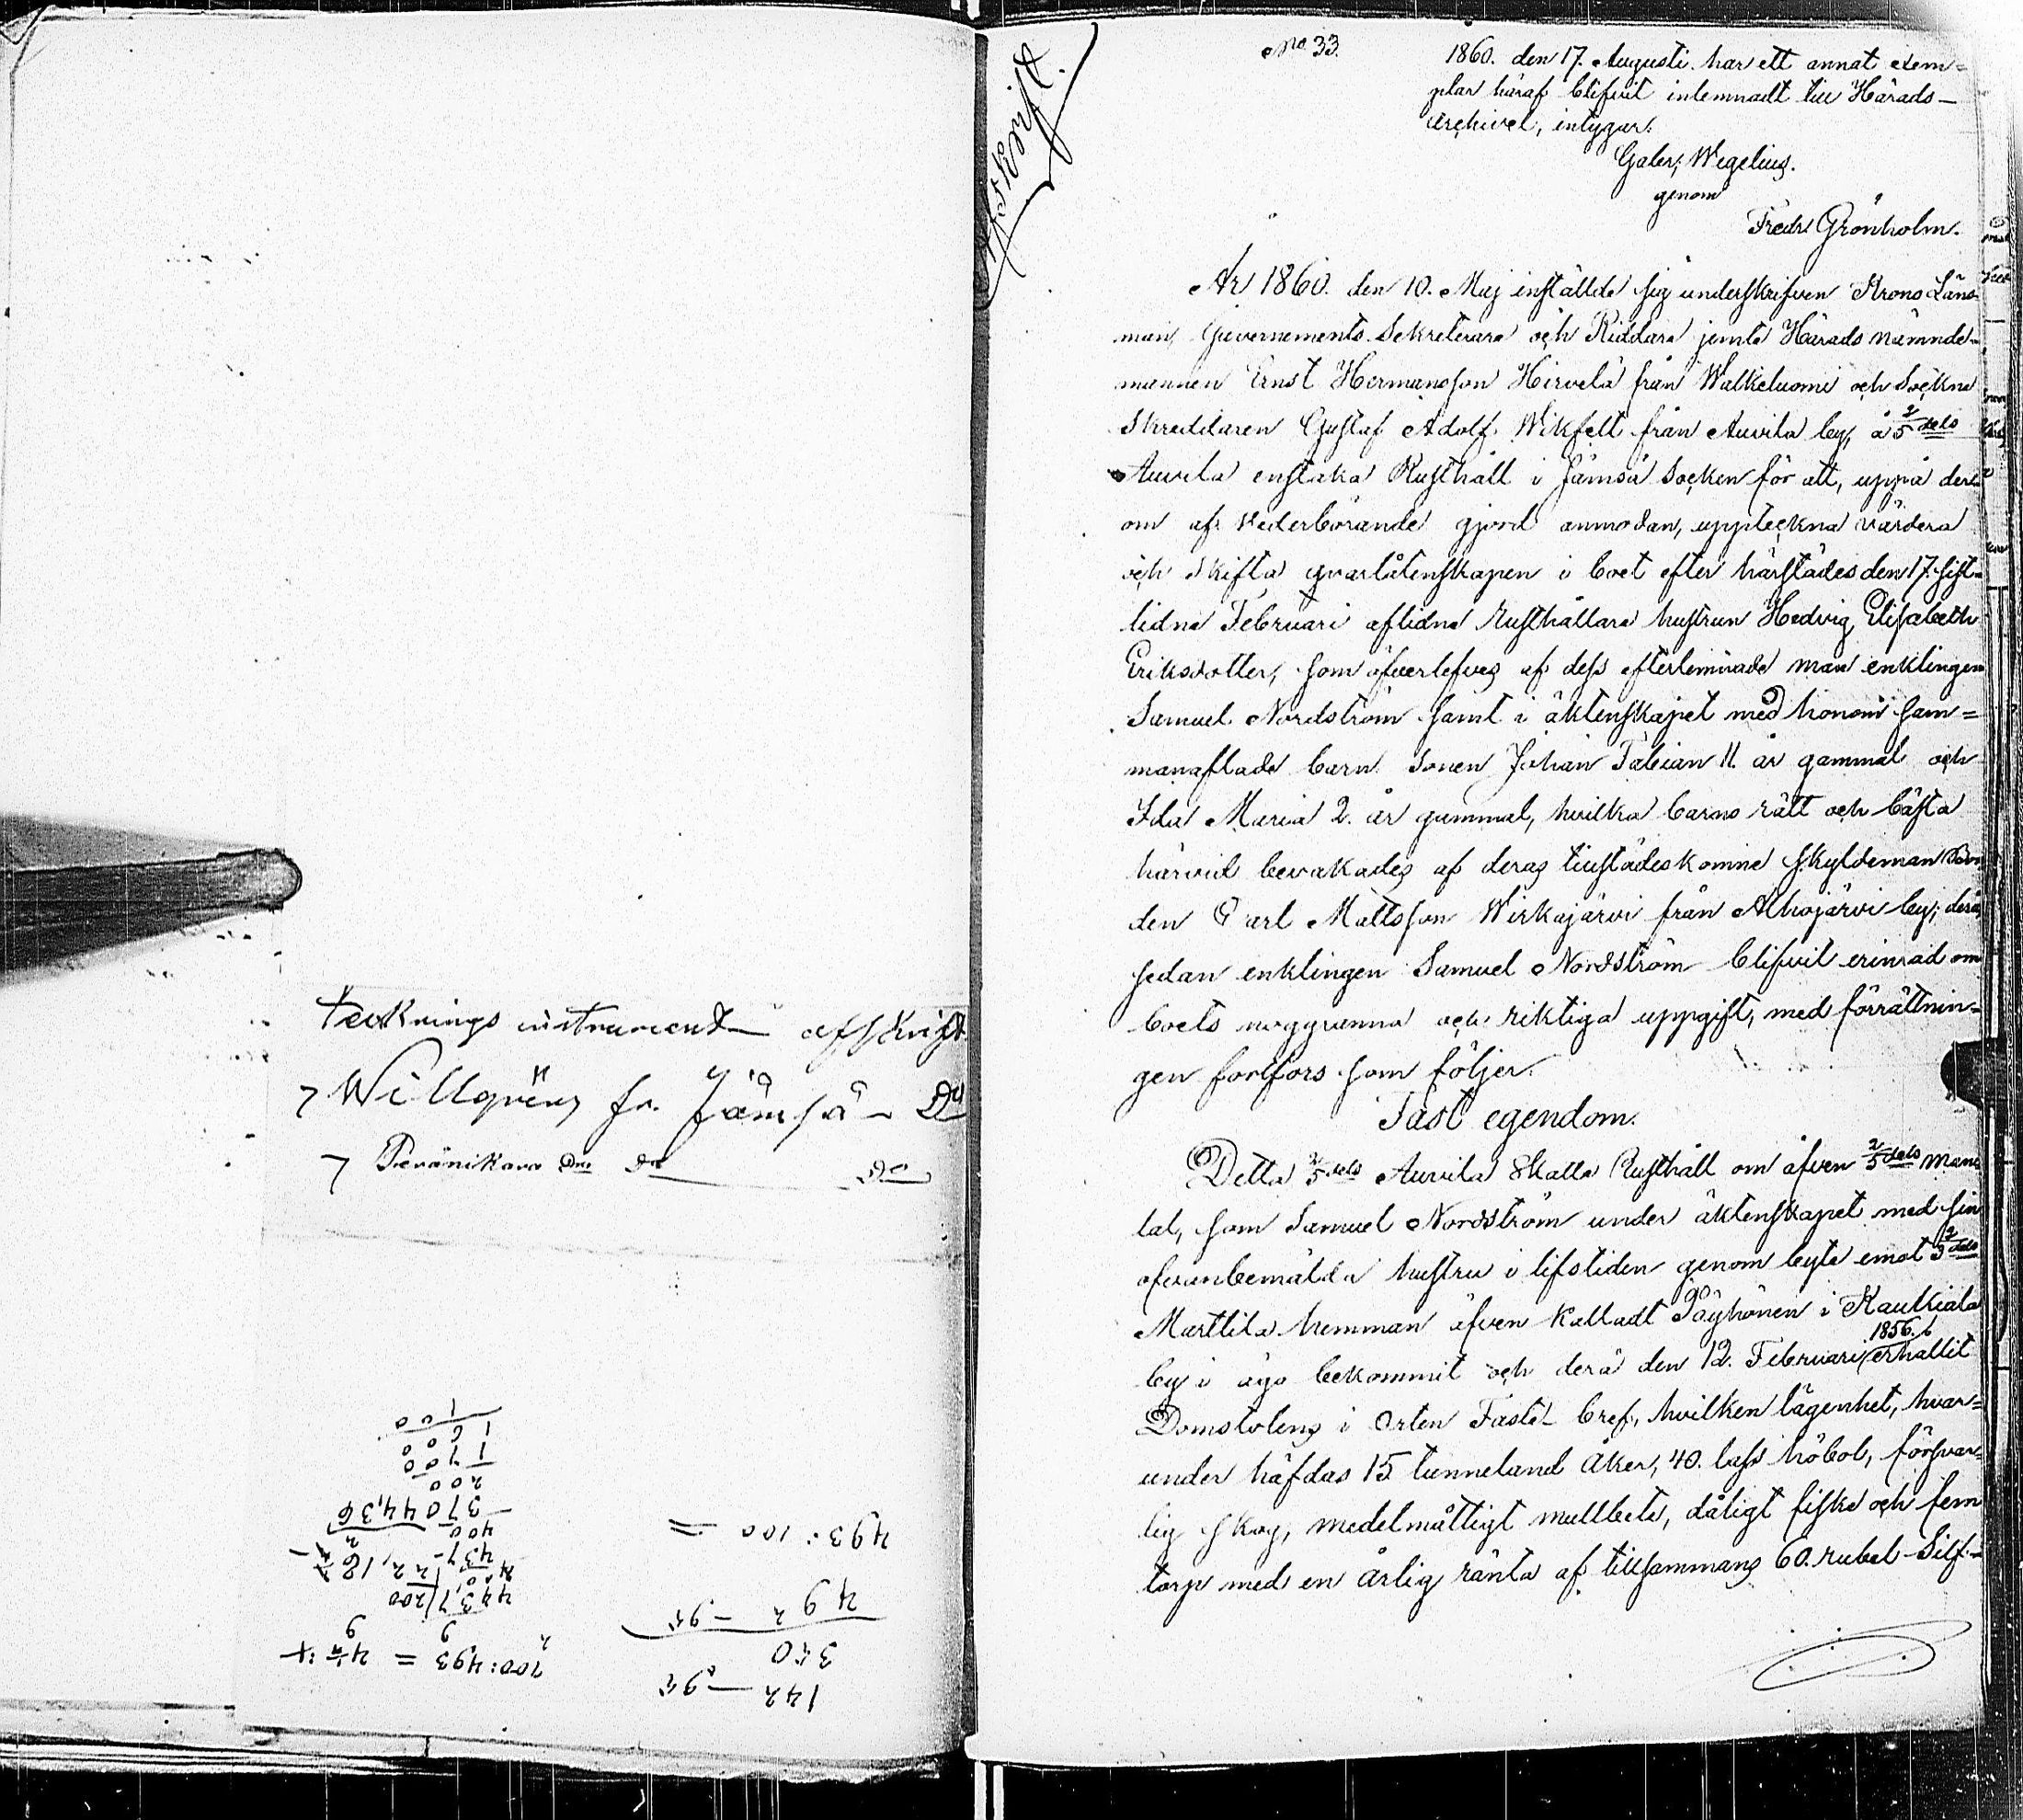 teckningsinstrument afskrift.
7 Willgrèns fr. Jämsä — Do
7 Peränikara Dne do Do
142 — 95
350
492 — 95
493 : 100 =
Afskrift.
No 33.
1860. den 17. Augusti har ett annat exem=
plar häraf blifvit inlemnadt till Härads-
archivet, intygar.
Gabr; Wegelius.
genom
Fredr Grönholm.
År 1860. den 10. Maj inställde sig underskrifven Krono Läns-
man, Guvernements Sekreterare och Riddare jemte Härads nämnde-
mannen Ernst Hermansson Hirvelä från Walkeluomi och Sockne
Skreddaren Gustaf Adolf Wikfelt från Auvila by, å 2/5 dels
Auvila enstaka Rusthåll i Jämsä Socken för att, uppå der-
om af vederbörande gjord anmodan, uppteckna värdera
och skifta qvarlåtenskapen i boet efter härstädes den 17. sist-
lidne Februari aflidne rusthållare hustrun Hedvig Elisabeth
Eriksdotter, som öfverlefves af dess efterlemnade man enklingen
Samuel Nordström samt i äktenskapet med honom sam=
manaflade barn Sonen Johan Fabian 11. år gammal och
Ida Maria 2. år gammal, hvilka barns rätt och bästa
härvid bevakades af deras tillstädeskomne skyldeman Bon
den Carl Mattsson Wirkajärvi från Alhojärvi by; derå,
sedan enklingen Samuel Nordström blifvit erinrad om
boets noggranna och riktiga uppgift, med förrättnin-
gen fortfors som följer.
Fast egendom.
Detta 2/5 dels Auvila Skatte Rusthåll om äfven 2/5 dels man
tal, som Samuel Nordström under äktenskapet med sin
ofvanbemälda hustru i lifstiden genom byte emot 2/3 dels
Marttila hemman äfven kalladt Pöyhönen i Kaukiala
by i ägo bekommit och derå den 12. Februari 1856. erhållit
Domstolens i Orten Faste-bref, hvilken lägenhet, hvar=
under häfdas 15 tunneland åker, 40. lass höbol, försvar-
lig skog, medelmåttigt mullbete, dåligt fiske och fem
torp med en årlig ränta af tillsammans 60. rubel Silf-